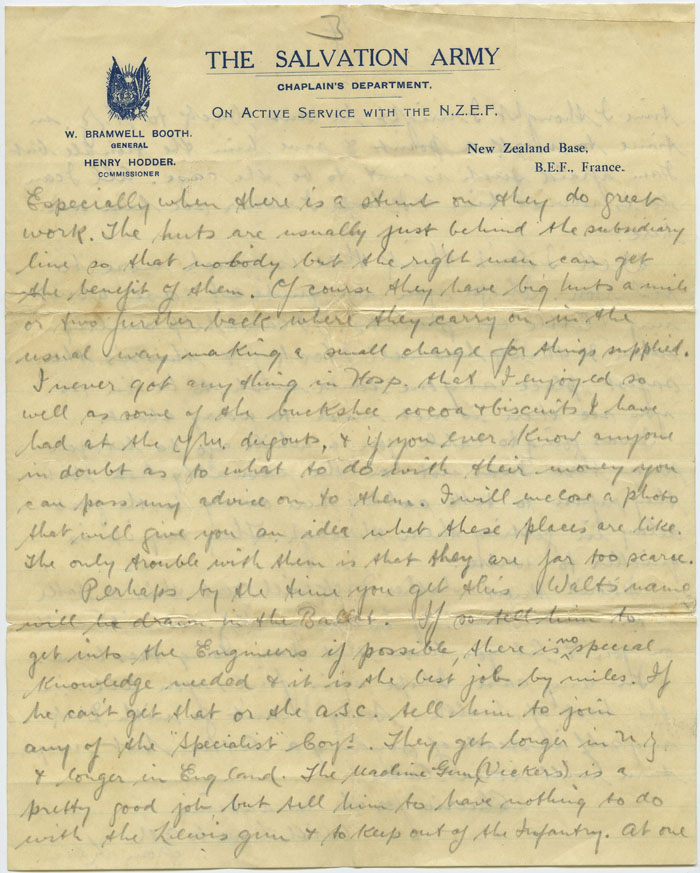 3
THE SALVATION ARMY
CHAPLAIN'S DEPARTMENT,
ON ACTIVE SERVICE WITH THE N.Z.E.F.
W. BRAMWELL BOOTH.
GENERAL
HENRY HODDER.
COMMISSIONER
New Zealand Base,
B.E.F., France.
Especially when there is a stunt on they do great
work. The huts are usually just behind the subsidiary
line so that nobody but the right men can get
the benefit of them. Of course they have big huts a mile
or two further back where they carry on in the
usual way making a small charge for things supplied.
I never got anything in Hosp. that I enjoyed so
well as some of the buckshee cocoa & biscuits I have
had at the Y.M. dugouts, & if you ever know anyone
in doubt as to what to do with their money you
can pass my advice on to them. I will enclose a photo
that will give you an idea what these places are like.
The only trouble with them is that they are far too scarce.
Perhaps by the time you get this Walt's name
will be drawn in the Ballot. If so tell him to
get into the Engineers if possible, there is no special
knowledge needed & it is the best job by miles. If
he can't get that or the A.S.C. tell him to join
any of the "Specialist" Coys. They get longer in N.Z
& longer in England. The Machine Gun (Vickers) is a
pretty good job but tell him to have nothing to do
with the Lewis gun & to keep out of the Infantry. At one